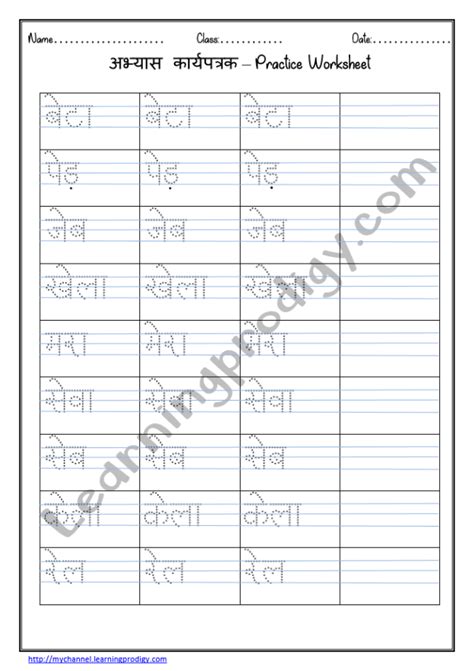 Name...................... Class:................ Date:................
अभ्यास कार्यपत्रक – Practice Worksheet
बेटा बेटा बेटा
पेड़ पेड़ पेड़
जेब जेब जेब
खेला खेला खेला
मरा मेरा मेरा
सेवा सेवा सेवा
सेब सेब सेब
केला केला केला
रेल रेल रेल
Learningprodigy.com
http://mychannel.learningprodigy.com